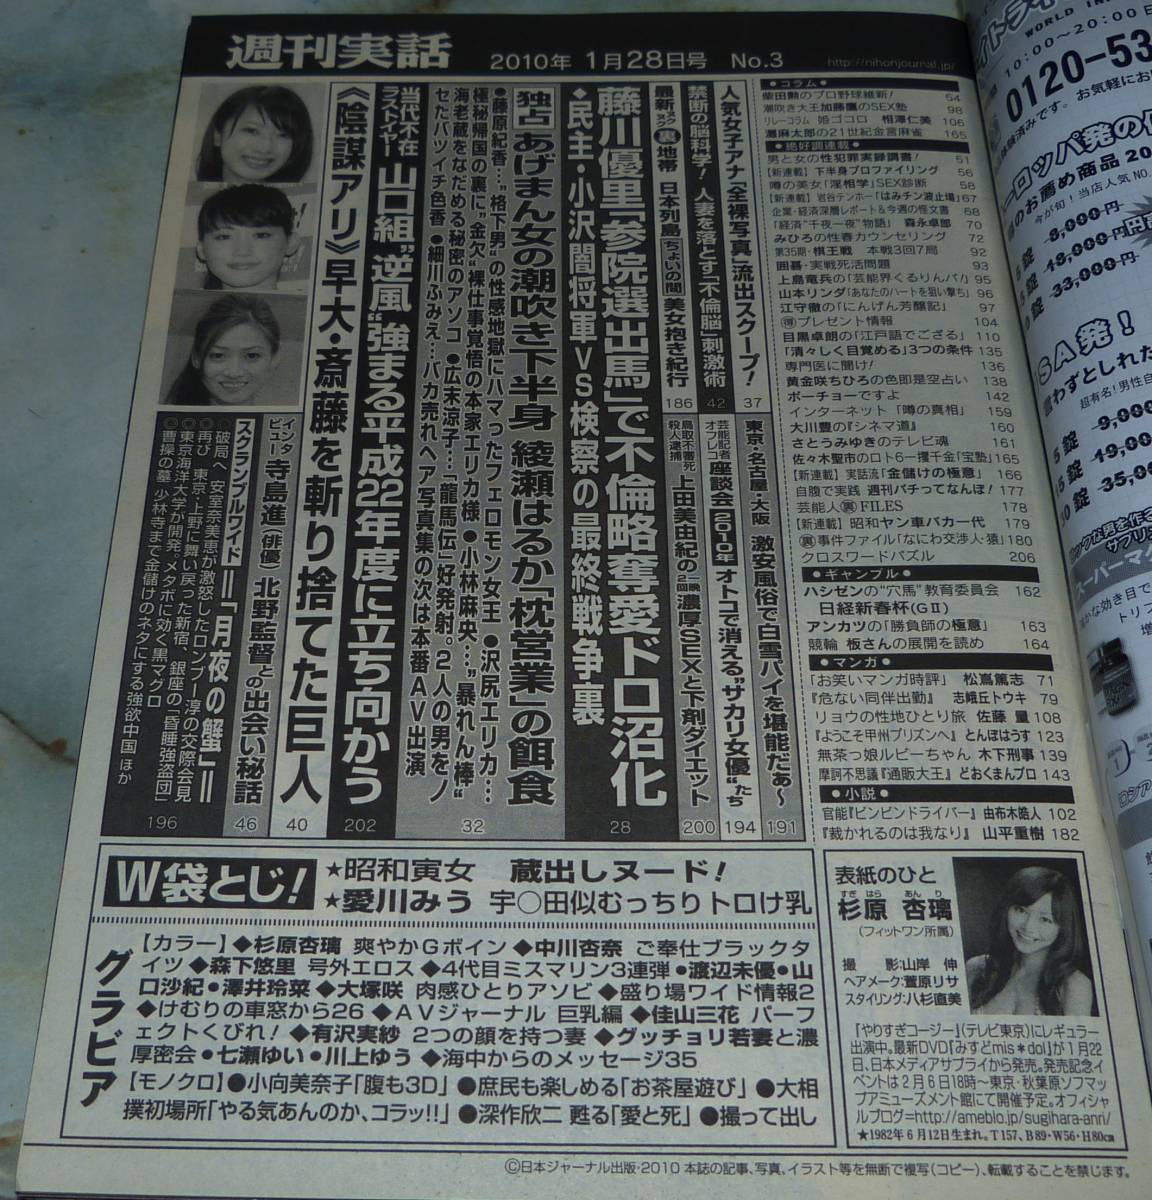 週刊実話
2010年 1月28日号 No.3
http://nihonjournal.jp/
コラム
柴田勲のプロ野球維新! 54
潮吹き大王加藤鷹のSEX塾 98
リレーコラム 婚ゴコロ 相澤仁美 106
灘麻太郎の21世紀金言麻雀 165
絶好調連載
男と女の性犯罪実録調書! 51
【新連載】下半身プロファイリング 56
噂の美女「淫相学」SEX診断 58
【新連載】岩谷テンホー「はみチン波止場」67
企業・経済深層レポート&今週の怪文書 68
「経済"千夜一夜"物語」 森永卓郎 70
みひろの性春カウンセリング 72
第35期・棋王戦 本戦3回7局 92
囲碁・実戦死活問題 93
上島竜兵の「芸能界くるりんパ」 95
山本リンダ「あなたのハートを狙い撃ち」 96
江守徹の「にんげん芳醸記」 97
㊕プレゼント情報 104
目黒卓朗の「江戸語でござる」 110
「清々しく目覚める」3つの条件 135
専門医に聞け! 136
黄金咲ちひろの色即是空占い 138
ポーチョーですよ 142
インターネット「噂の真相」 159
大川豊の『シネマ道』 160
さとうみゆきのテレビ魂 161
佐々木聖市のロト6一攫千金「宝塾」165
【新連載】実話流「金儲けの極意」 166
自腹で実践 週刊パチってなんぼ! 177
芸能人裏FILES 178
【新連載】昭和ヤン車バカ一代 179
裏事件ファイル「なにわ交渉人・猿」180
クロスワードパズル 206
ギャンブル
ハシゼンの"穴馬"教育委員会 162
日経新春杯(GⅡ)
アンカツの「勝負師の極意」 163
競輪 板さんの展開を読め 164
マンガ
「お笑いマンガ時評」 松嶌篤志 71
『危ない同伴出勤』 志峨丘トウキ 79
リョウの性地ひとり旅 佐藤量 108
『ようこそ甲州プリズンへ』 とんぼはうす 123
無茶っ娘ルビーちゃん 木下刑事 139
摩訶不思議『通販大王』 どおくまんプロ 143
小説
官能『ビンビンドライバー』 由布木皓人 102
『裁かれるのは我なり』 山平重樹 182
人気女子アナ「全裸写真」流出スクープ! 37
禁断の脳科学! 人妻を落とす「不倫脳」刺激術 42
最新ヌクヌク裏地帯 日本列島「ちょいの間」美女抱き紀行 186
東京・名古屋・大阪 激安風俗で白雪パイを堪能だぁ〜 191
芸能記者オフレコ座談会 2010年 オトコで消える"サカリ女優"たち 194
鳥取不審死殺人逮捕 上田美由紀の一晩2回濃厚SEXと下剤ダイエット 200
藤川優里「参院選出馬」で不倫略奪愛ドロ沼化
◆民主・小沢闇将軍VS検察の最終戦争裏
28
独占 あげまん女の潮吹き下半身 綾瀬はるか「枕営業」の餌食
●藤原紀香…"格下男"の性感地獄にハマったフェロモン女王 ●沢尻エリカ…
極秘帰国の裏に"金欠"裸仕事覚悟の本家エリカ様 ●小林麻央…"暴れん棒"
海老蔵をなだめる秘密のアソコ ●広末涼子…「龍馬伝」好発射。2人の男をノ
セたバツイチ色香 ●細川ふみえ…バカ売れヘア写真集の次は本番AV出演
32
当代不在ラストイヤー 山口組"逆風"強まる平成22年度に立ち向かう
202
《陰謀アリ》早大・斎藤を斬り捨てた巨人
40
インタビュー 寺島進(俳優) 北野監督との出会い秘話
46
スクランブルワイド=「月夜の蟹」=
◎破局へ 安室奈美恵が激怒したロンブー淳の交際会見
◎再び 東京・上野に舞い戻った新宿、銀座の「昏睡強盗団」
◎東京海洋大学が開発。メタボに効く黒マグロ
◎曹操の墓 少林寺まで金儲けのネタにする強欲中国 ほか
196
W袋とじ!
★昭和寅女 蔵出しヌード!
★愛川みう 宇○田似むっちりトロけ乳
グラビア
【カラー】◆杉原杏璃 爽やかGボイン◆中川杏奈 ご奉仕ブラックタ
イツ◆森下悠里 号外エロス◆4代目ミスマリン3連弾●渡辺未優●山
口沙紀●澤井玲菜◆大塚咲 肉感ひとりアソビ◆盛り場ワイド情報2
◆けむりの車窓から26◆AVジャーナル 巨乳編◆佳山三花 パーフ
ェクトくびれ!◆有沢実紗 2つの顔を持つ妻◆グッチョリ若妻と濃
厚密会●七瀬ゆい●川上ゆう◆海中からのメッセージ35
【モノクロ】●小向美奈子「腹も3D」●庶民も楽しめる「お茶屋遊び」●大相
撲初場所「やる気あんのか、コラッ!!」●深作欣二 甦る「愛と死」●撮って出し
表紙のひと
すぎ はら あん り
杉原 杏璃
(フィットワン所属)
撮 影:山岸 伸
ヘアメーク:萱原リサ
スタイリング:八杉直美
『やりすぎコージー』(テレビ東京)にレギュラー
出演中。最新DVD『みすどmis*dol』が1月22
日、日本メディアサプライから発売。発売記念イ
ベントは2月6日18時〜東京・秋葉原ソフマッ
プアミューズメント館にて開催予定。オフィシャ
ルブログ=http://ameblo.jp/sugihara-anri/
★1982年6月12日生まれ。T157、B89・W56・H80㎝
©日本ジャーナル出版・2010 本誌の記事、写真、イラスト等を無断で複写(コピー)、転載することを禁じます。
WORLD IN
10:00〜20:00
0120-53
ーロッパ発の
のお薦め商品 20
8,000円
18,000円
33,000円
SA発!
9,000
19,000
35,000